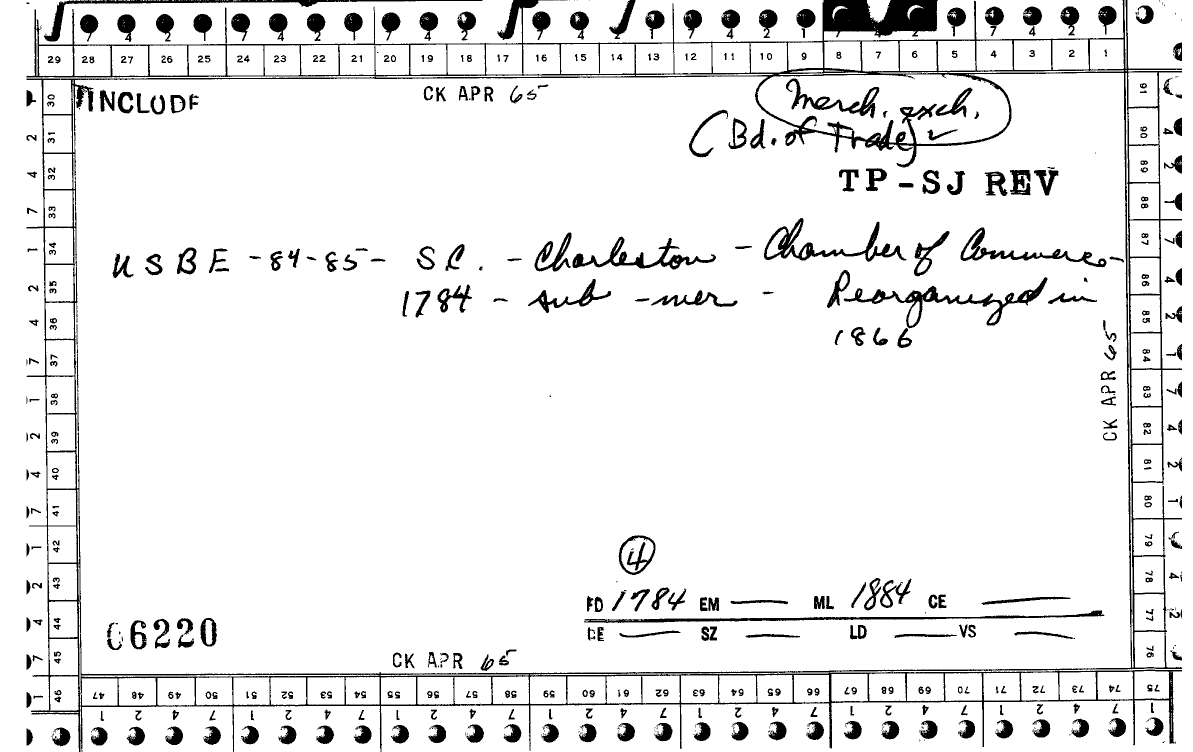 29 28 27 26 25 24 23 22 21 20 19 18 17 16 15 14 13 12 11 10 9 8 7 6 5 4 3 2 1
INCLUDE CK APR 65
Merch. exch.
(Bd. of Trade) ✓
TP-SJ REV
USBE-84-85- S.C. - Charleston - Chamber of Commerce-
1784 - sub - mer - Reorganized in
1866
CK APR 65
④
FD 1784 EM — ML 1884 CE —
DE — SZ — LD — VS —
06220
CK APR 65
30 31 32 33 34 35 36 37 38 39 40 41 42 43 44 45 46
91 90 89 88 87 86 85 84 83 82 81 80 79 78 77 76
47 48 49 50 51 52 53 54 55 56 57 58 59 60 61 62 63 64 65 66 67 68 69 70 71 72 73 74 75